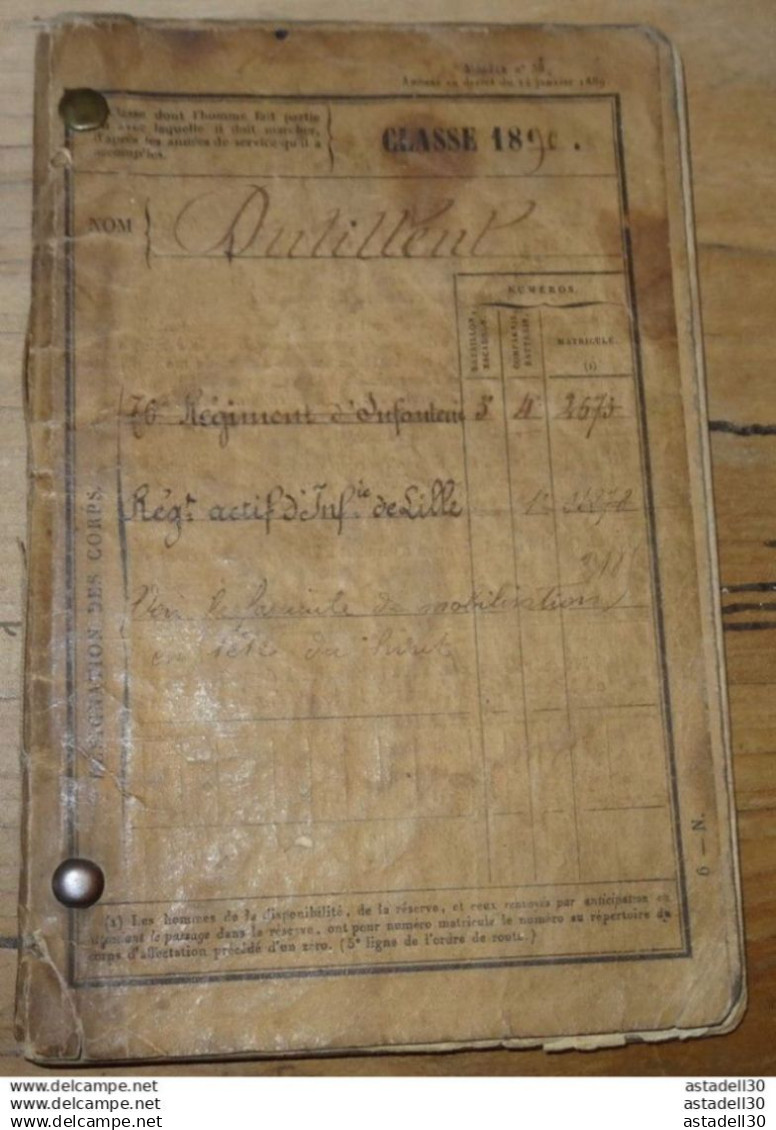 Modèle n°
Annexé au décret du 14 janvier 1889
Classe dont l'homme fait partie
ou avec laquelle il doit marcher,
d'après les années de service qu'il a
accomplies.
CLASSE 1890.
NOM
Dutilleul
NUMÉROS.
BATAILLON, ESCADRON
COMPAGNIE, BATTERIE
MATRICULE (1)
DÉSIGNATION DES CORPS.
76e Régiment d'Infanterie 3e 4e 2673
Régt actif d'Infie de Lille
Voir le fascicule de mobilisation
en tête du livret
6 — N.
(1) Les hommes de la disponibilité, de la réserve, et ceux renvoyés par anticipation en
attendant le passage dans la réserve, ont pour numéro matricule le numéro au répertoire du
corps d'affectation précédé d'un zéro. (5e ligne de l'ordre de route.)
www.delcampe.net
www.delcampe.net
www.delcampe.net
astadell30
astadell30
astadell30